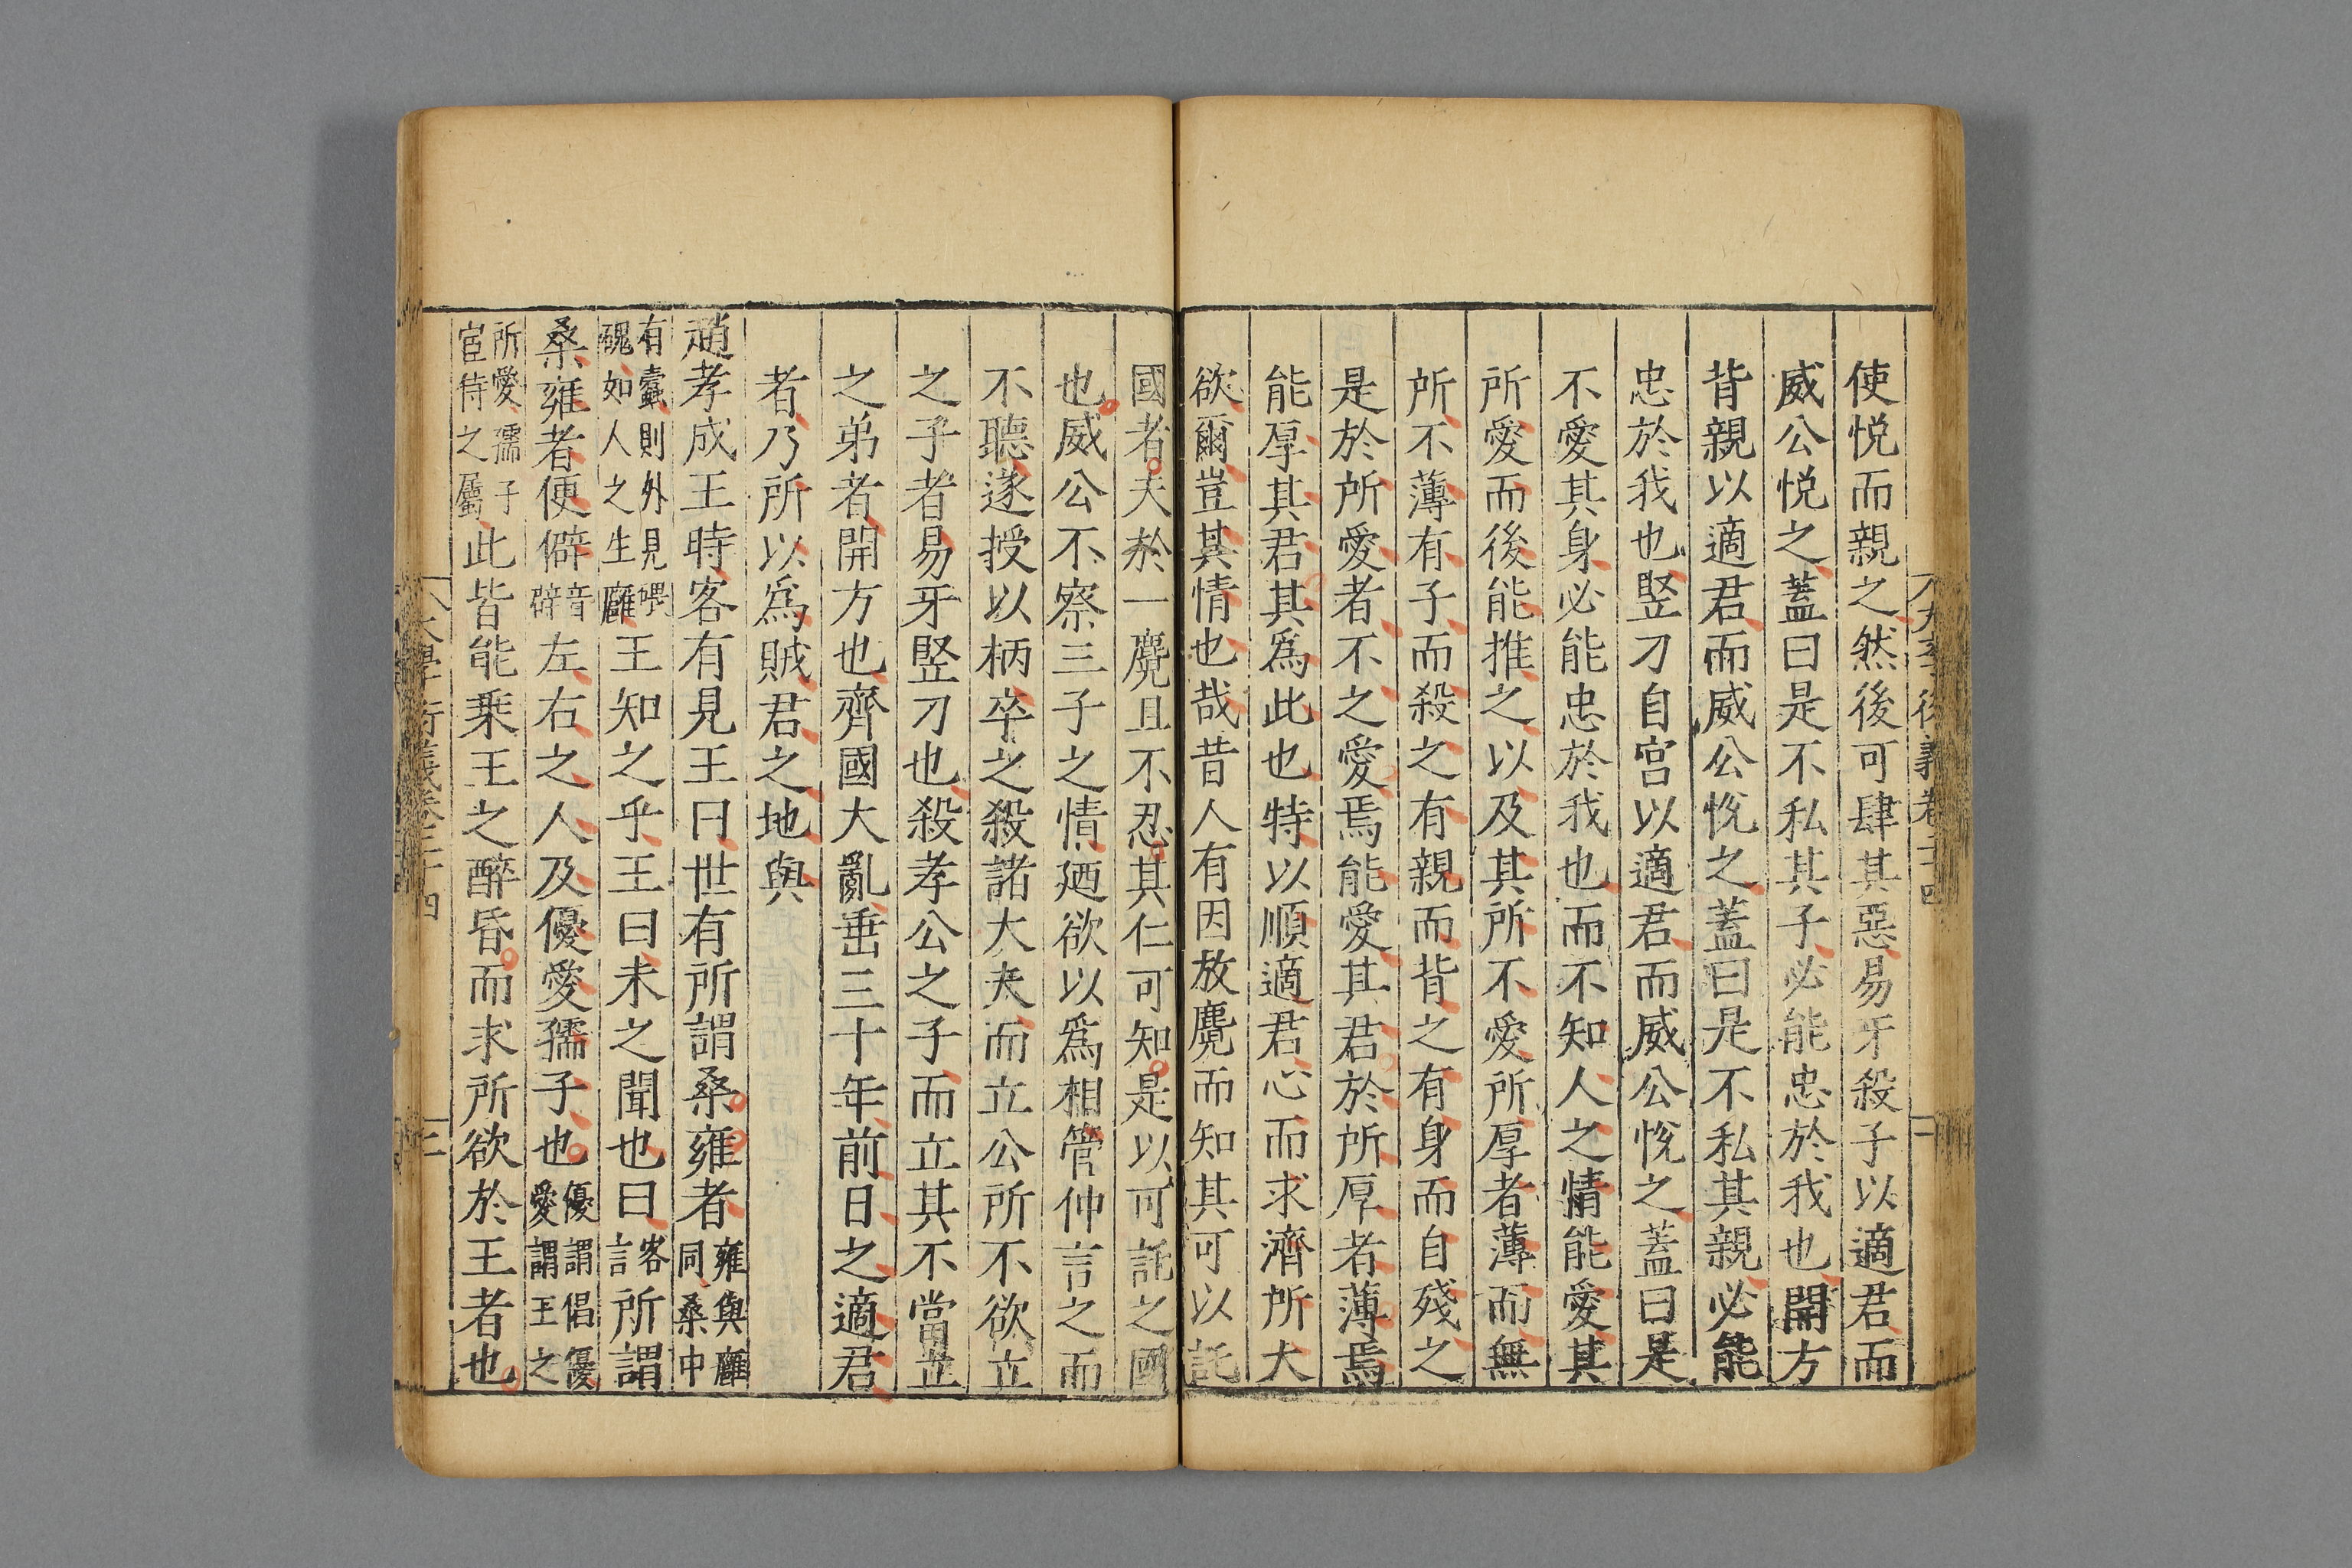 使悦而親之然後可肆其惡易牙殺子以適君而
威公悦之蓋曰是不私其子必能忠於我也開方
背親以適君而威公悅之蓋曰是不私其親必能
忠於我也竪刁自宫以適君而威公悅之蓋曰是
不愛其身必能忠於我也而不知人之情能愛其
所愛而後能推之以及其所不愛所厚者薄而無
所不薄有子而殺之有親而背之有身而自殘之
是於所愛者不之愛焉能愛其君於所厚者薄焉
能厚其君其爲此也特以順適君心而求濟所大
欲爾豈其情也哉昔人有因放麑而知其可以託
國者夫於一麑且不忍其仁可知是以可託之國
也威公不察三子之情廼欲以爲相管仲言之而
不聽遂授以柄卒之殺諸大夫而立公所不欲立
之子者易牙竪刁也殺孝公之子而立其不當立
之弟者開方也齊國大亂垂三十年前日之適君
者乃所以爲賊君之地與
趙孝成王時客有見王曰世有所謂桑雍者雍與癰同桑中
有蠹則外見磈磈如人之生癰王知之乎王曰未之聞也曰客言所謂
桑雍者便僻音辟左右之人及優愛孺子也優謂倡優愛謂王之
所愛孺子宦侍之屬此皆能乗王之醉昏而求所欲於王者也
大學衍義卷二十四
二